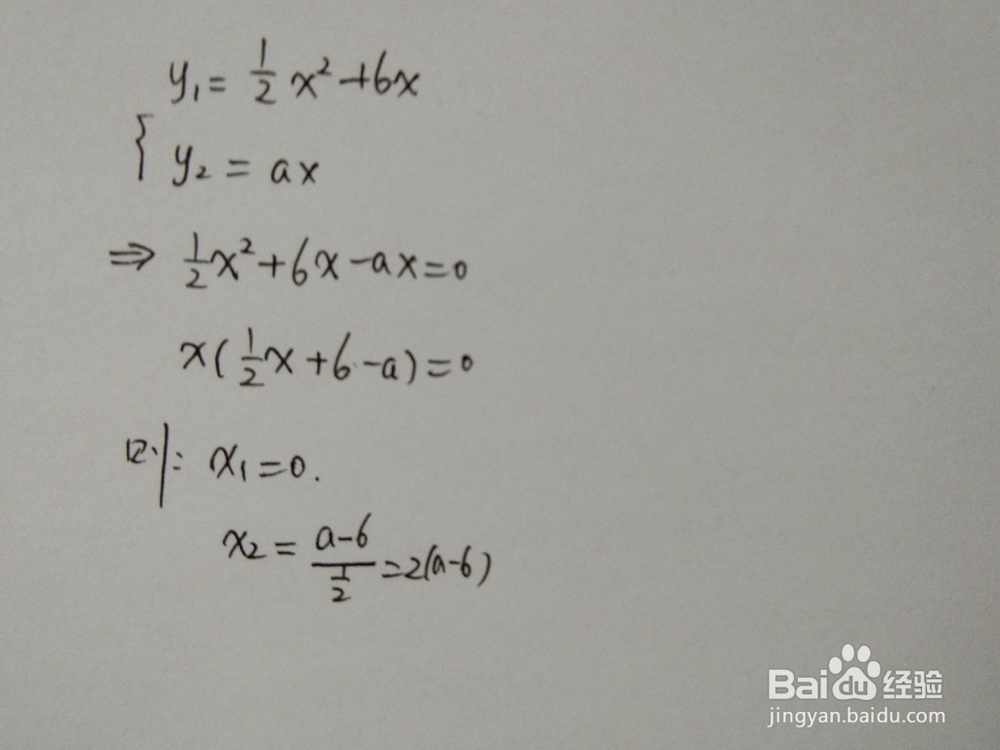 y₁ = 1/2 x² + 6x
{ y₂ = ax
⇒ 1/2 x² + 6x - ax = 0
x(1/2 x + 6 - a) = 0
则: x₁ = 0.
x₂ = (a-6)/(1/2) = 2(a-6)
Baidu 经验
jingyan.baidu.com